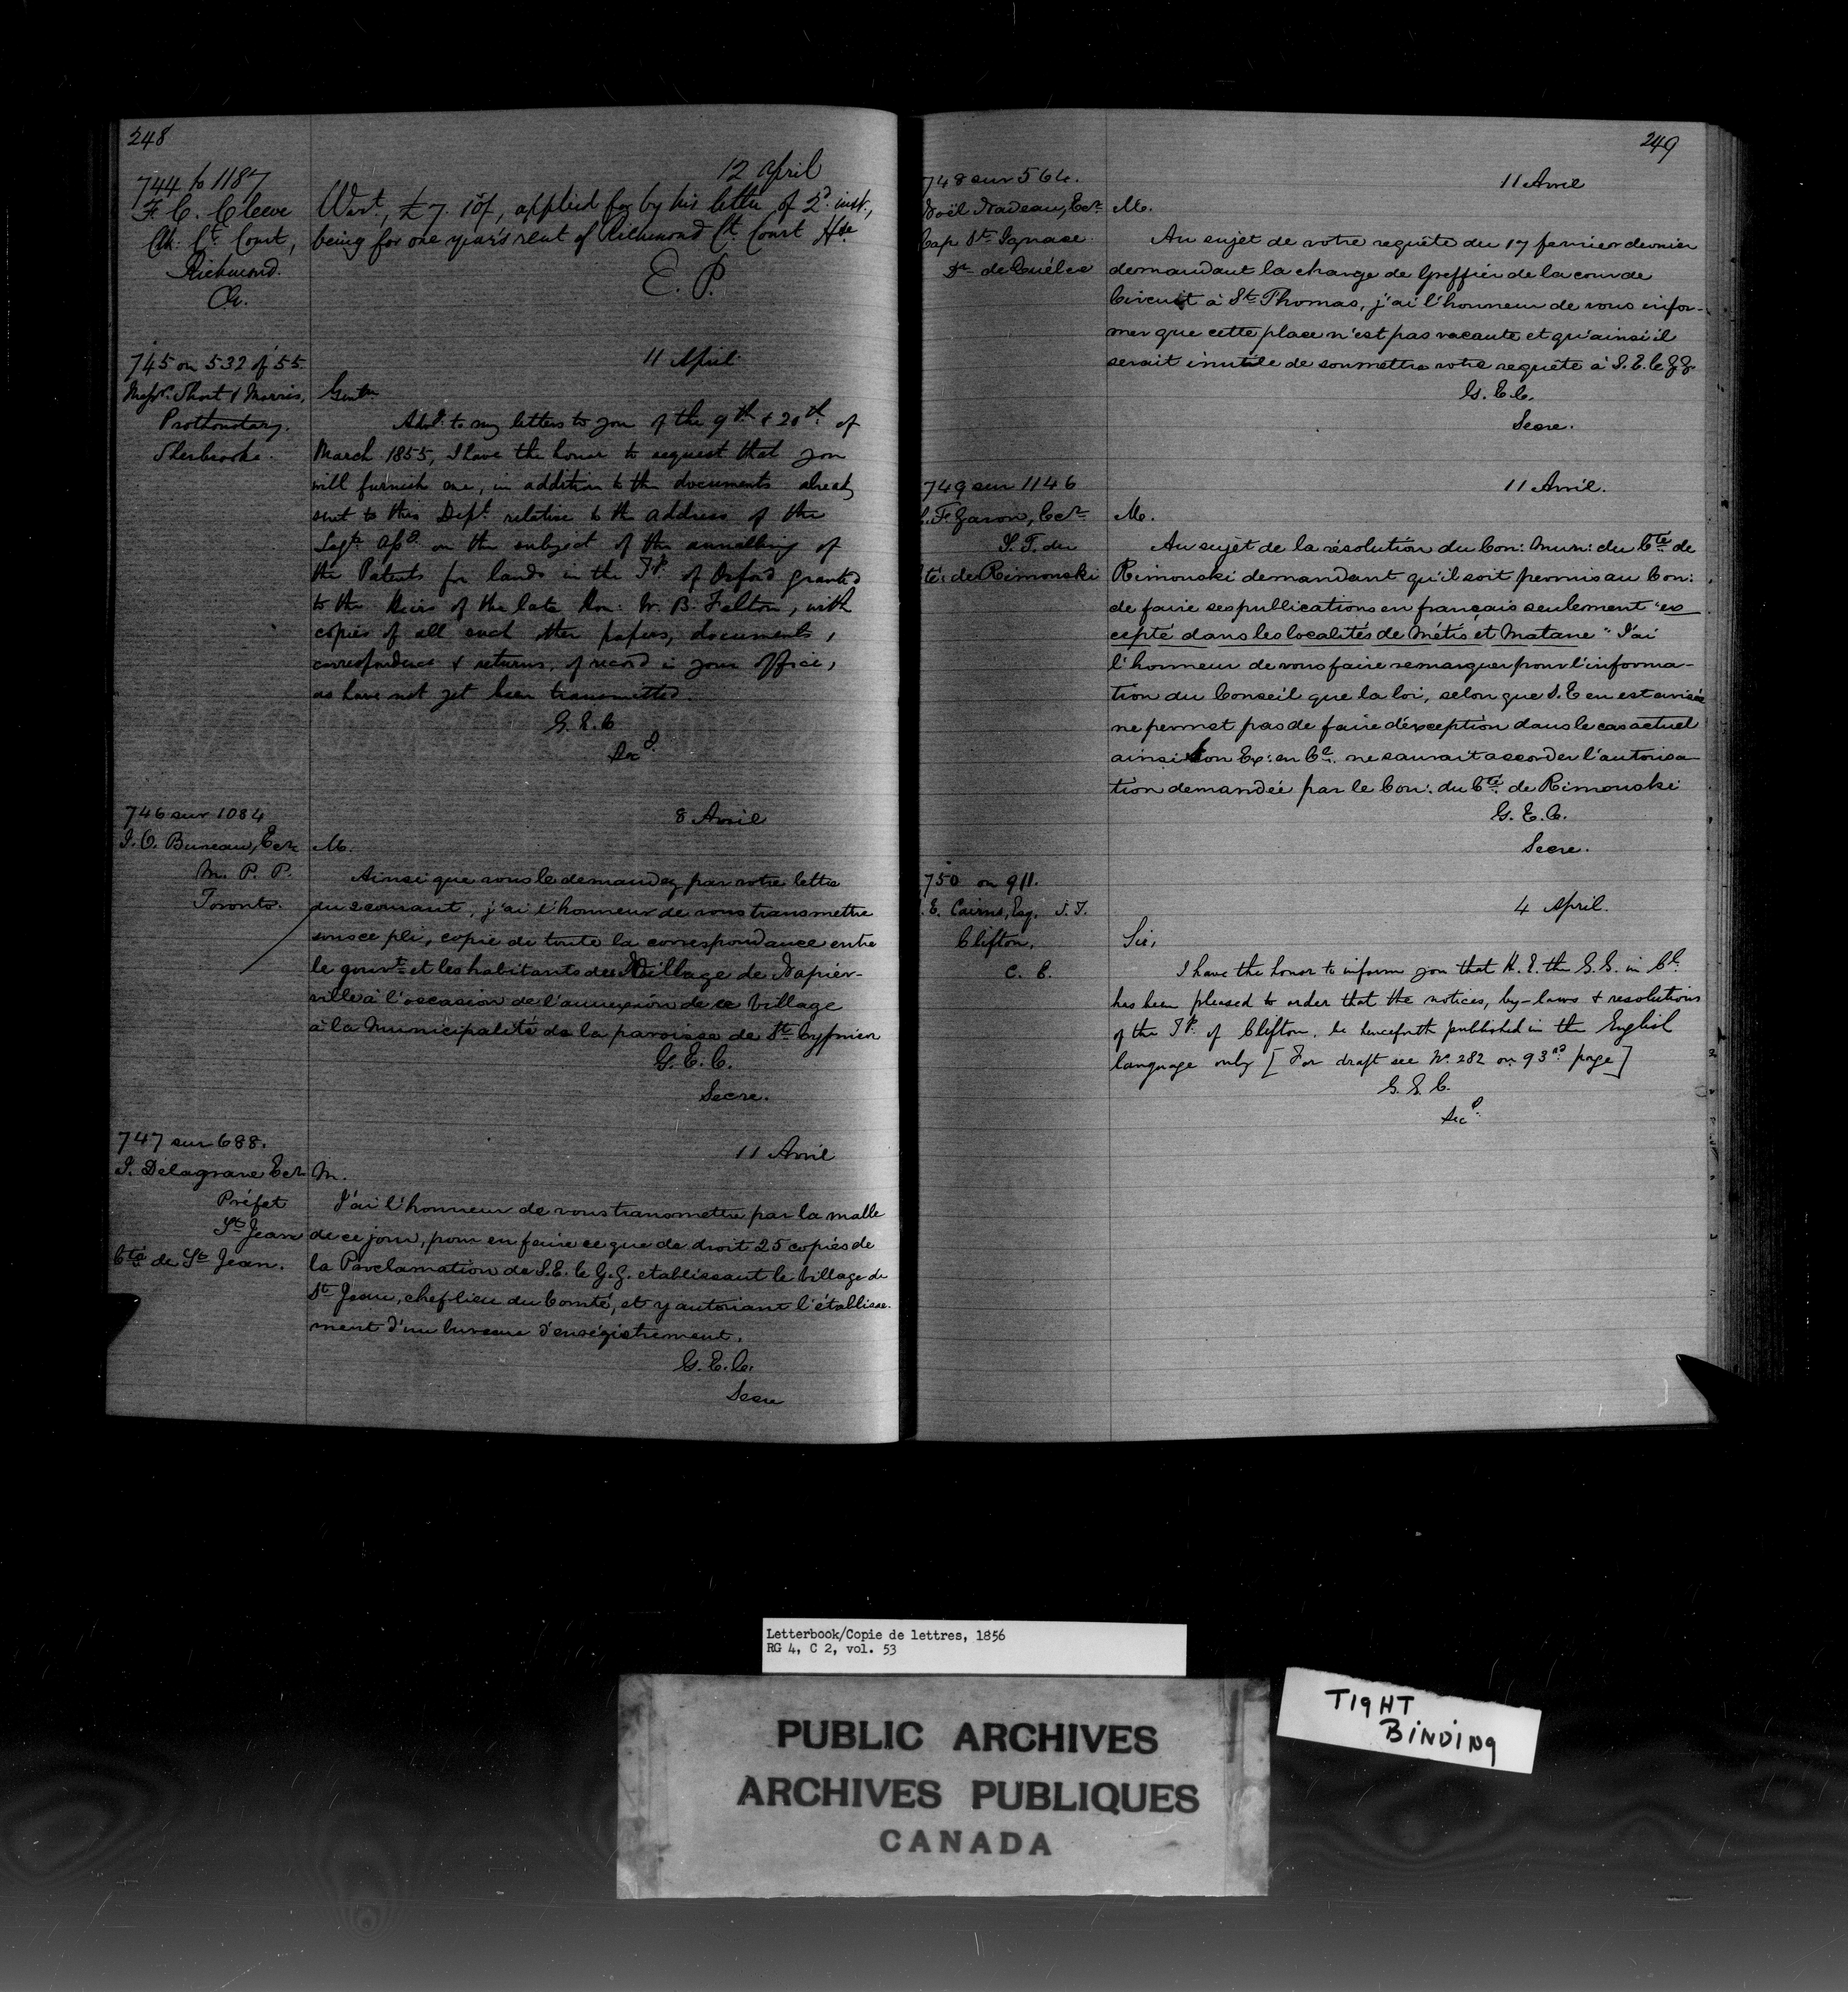 248
744 to 1187
F. C. Cleeve
Clk. Ct. Court,
Richmond.
12 April
Wart., £7. 10/, applied for by his letter of 2d. inst.,
being for one year's rent of Richmond Ct. Court Hse
E. P.
745 on 532 of 55
Messrs. Short & Morris,
Prothonotary.
Sherbrooke.
11 April
Gentn
Advg. to my letters to you of the 9th & 20th of
March 1855, I have the honor to request that you
will furnish me, in addition to the documents already
sent to this Dept. relative to the address of the
on the subject of the annulling of
the Patents for lands in the Tp. of Orford granted
to the Heirs of the late Hon: W. B. Felton, with
copies of all such other papers, documents,
correspondence & returns, of record in your office,
as have not yet been transmitted.
G. E. C
Secy.
746 sur 1084
J. O. Bureau, Ecr
M. P. P.
Toronto.
8 Avril
M.
Ainsi que vous le demandez par votre lettre
du 2 courant, j'ai l'honneur de vous transmettre
sous ce pli, copie de toute la correspondance entre
le gouvt. et les habitants du Village de Napier-
ville à l'occasion de l'annexion de ce Village
à la Municipalité de la paroisse de St. Cyprien
G. E. C.
Secre.
747 sur 688.
J. Delagrave Ecr
Préfet
St Jean
Cté de St Jean.
11 Avril
M.
J'ai l'honneur de vous transmettre par la malle
de ce jour, pour en faire ce que de droit 25 copies de
la Proclamation de S. E. le G. G. etablissant le Village de
St Jean, chef lieu du Comté, et y autorisant l'établisse-
ment d'un bureau d'enrégistrement.
G. E. C.
Secre
249
748 sur 564.
Noël Nadeau, Ecr
Cap St. Ignace
Dt. de Québec
11 Avril
M.
Au sujet de votre requête du 17 fevrier dernier
demandant la charge de Greffier de la cour de
Circuit à St. Thomas, j'ai l'honneur de vous infor-
mer que cette place n'est pas vacante et qu'ainsi il
serait inutile de soumettre votre requête à S. E. le G. G.
G. E. C.
Secre.
749 sur 1146
L. F. Garon, Ecr
S. T. du
té: de Rimouski
11 Avril.
M.
Au sujet de la résolution du Con: Mun: du Cté. de
Rimouski demandant qu'il soit permis au Con:
de faire ses publications en français seulement "ex
cepté dans les localités de Métis et Matane" J'ai
l'honneur de vous faire remarquer pour l'informa-
tion du Conseil que la loi, selon que S. E en est avisée
ne permet pas de faire d'exception dans le cas actuel
ainsi Son Ex: en Cl. ne saurait accorder l'autorisa
tion demandée par le Con: du Cté. de Rimouski
G. E. C.
Secre.
750 on 911.
E. Cairns, Esq. S. T.
Clifton.
C. E.
4 April.
Sir,
I have the honor to inform you that H. E. the G. G. in Cl.
has been pleased to order that the notices, by-laws & resolutions
of the Tp. of Clifton, be henceforth published in the English
language only [For draft see No. 282 on 93rd page]
G. E. C.
Secy.
Letterbook/Copie de lettres, 1856
RG 4, C 2, vol. 53
PUBLIC ARCHIVES
ARCHIVES PUBLIQUES
CANADA
TIGHT
BINDING